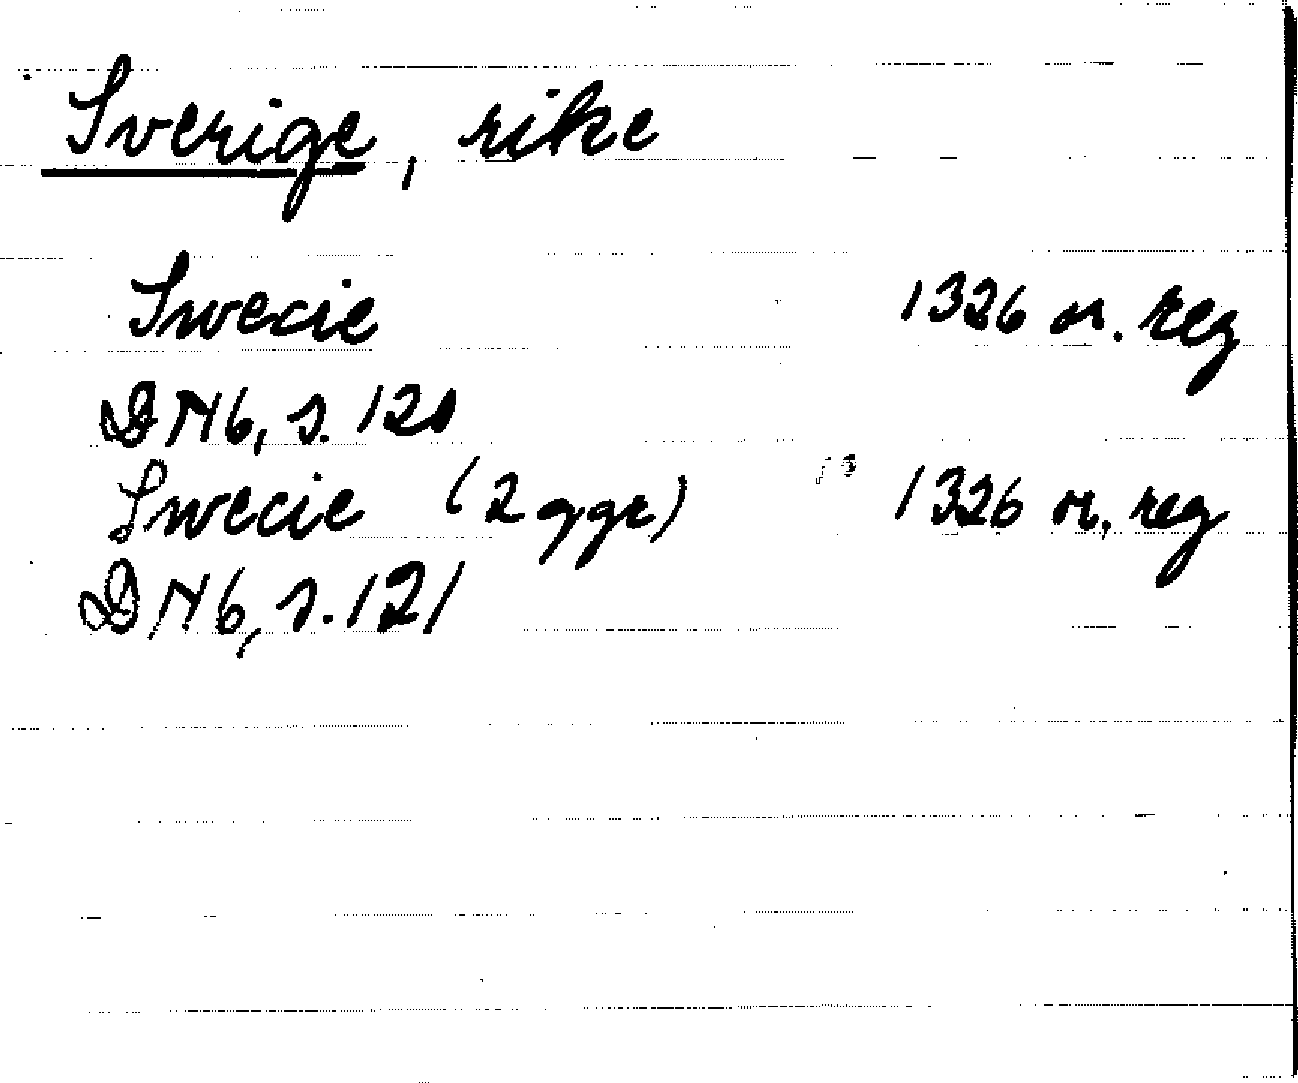 Sverige, rike
Swecie 1326 or. reg
DN6, s. 120
Swecie (2 ggr) 1326 or. reg
DN6, s. 121